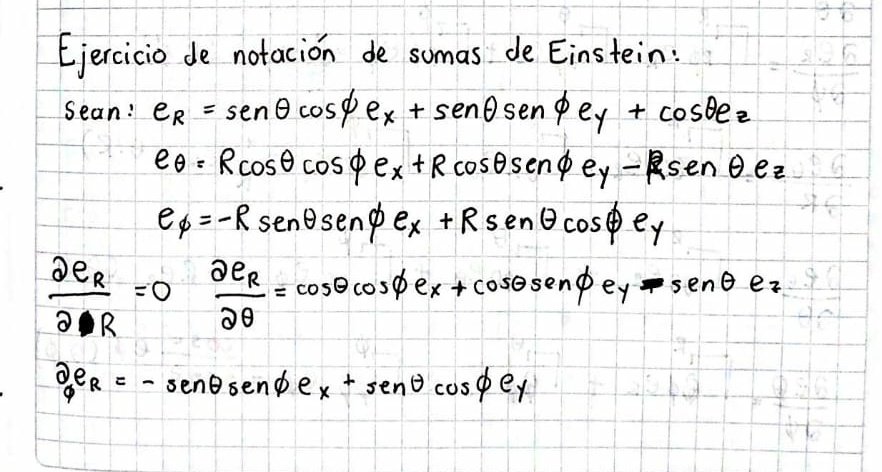 Ejercicio de notación de sumas de Einstein:
Sean: e_R = senθ cosϕ e_x + senθ sen ϕ e_y + cosθ e_z
e_θ = R cosθ cosϕ e_x + R cosθ senϕ e_y - R sen θ e_z
e_ϕ = -R senθ senϕ e_x + R senθ cosϕ e_y
∂e_R/∂R = 0 ∂e_R/∂θ = cosθ cosϕ e_x + cosθ senϕ e_y - senθ e_z
∂_ϕ e_R = - senθ senϕ e_x + senθ cosϕ e_y